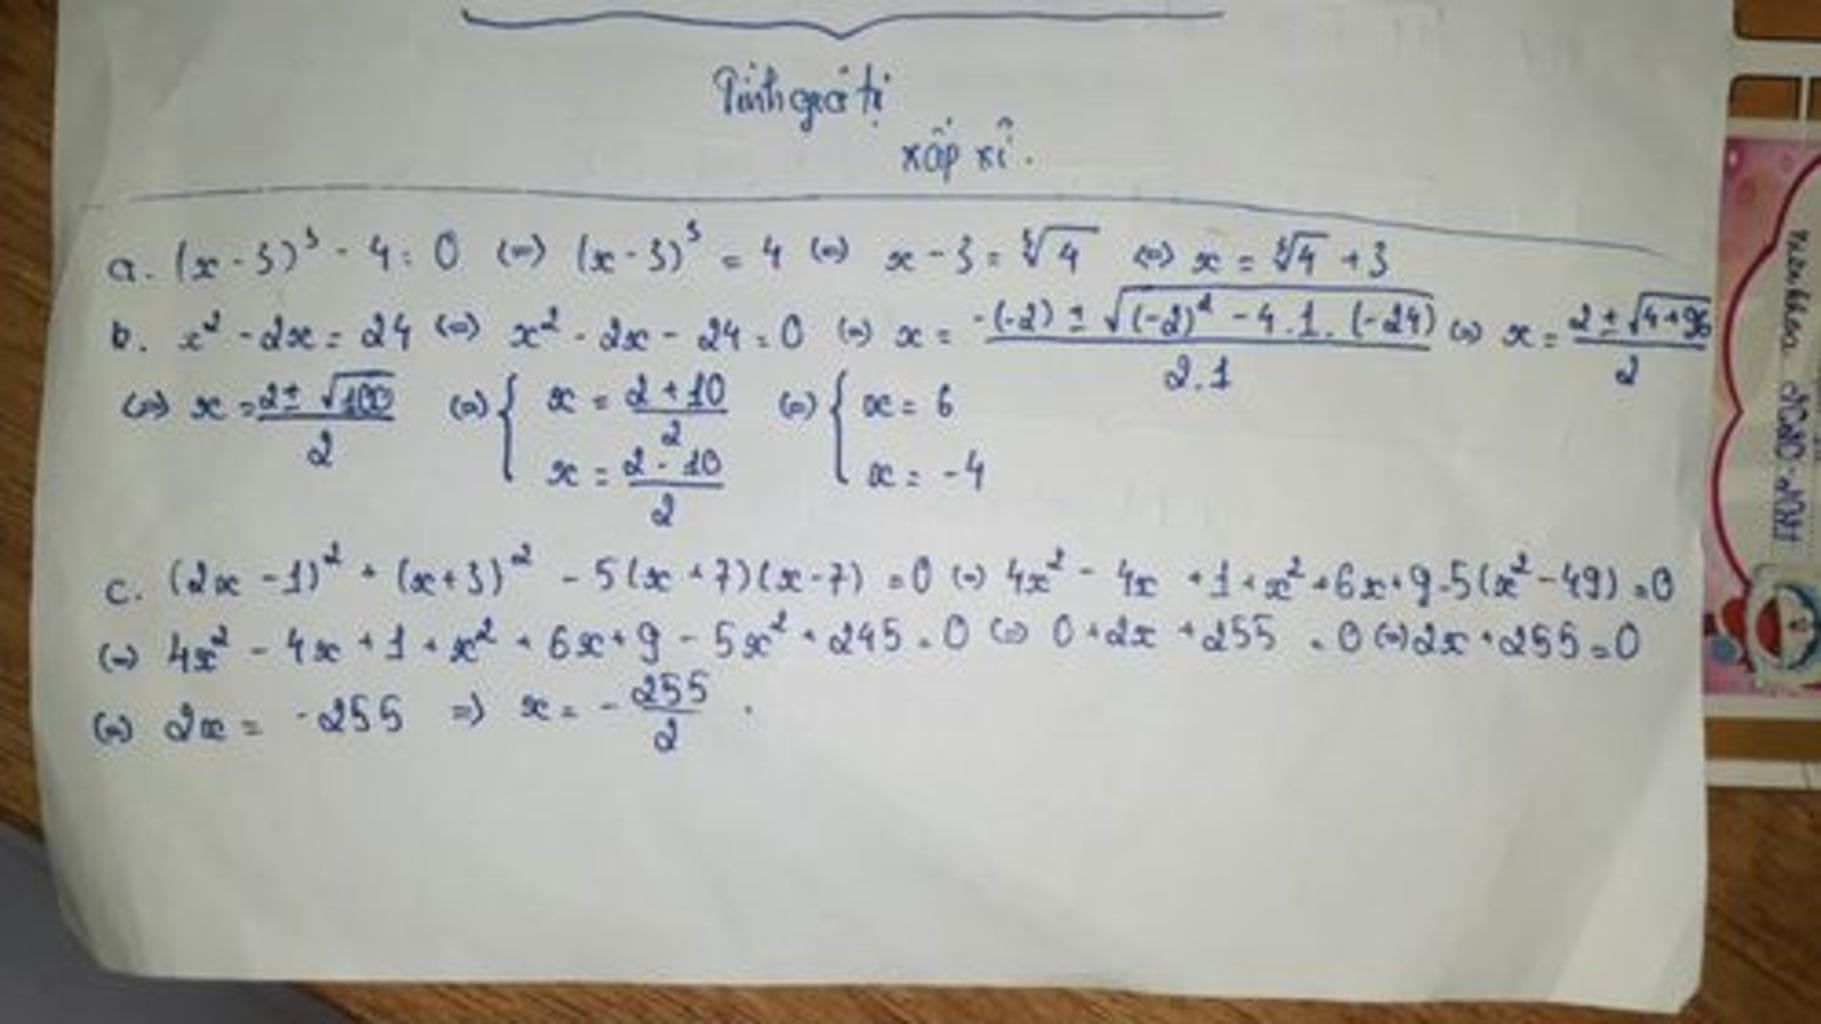 Tính giá trị
xấp xỉ.
a. (x - 3)³ - 4 = 0 (=) (x - 3)³ = 4 (=) x - 3 = ∛4 (=) x = ∛4 + 3
b. x² - 2x = 24 (=) x² - 2x - 24 = 0 (=) x = (-(-2) ± √((-2)² - 4.1.(-24)))/2.1 (=) x = (2 ± √(4+96))/2
(=) x = (2 ± √100)/2 (=) { x = (2 + 10)/2 ; x = (2 - 10)/2 (=) { x = 6 ; x = -4
c. (2x - 1)² + (x + 3)² - 5(x + 7)(x - 7) = 0 (=) 4x² - 4x + 1 + x² + 6x + 9 - 5(x² - 49) = 0
(=) 4x² - 4x + 1 + x² + 6x + 9 - 5x² + 245 = 0 (=) 0 + 2x + 255 = 0 (=) 2x + 255 = 0
(=) 2x = -255 => x = -255/2.